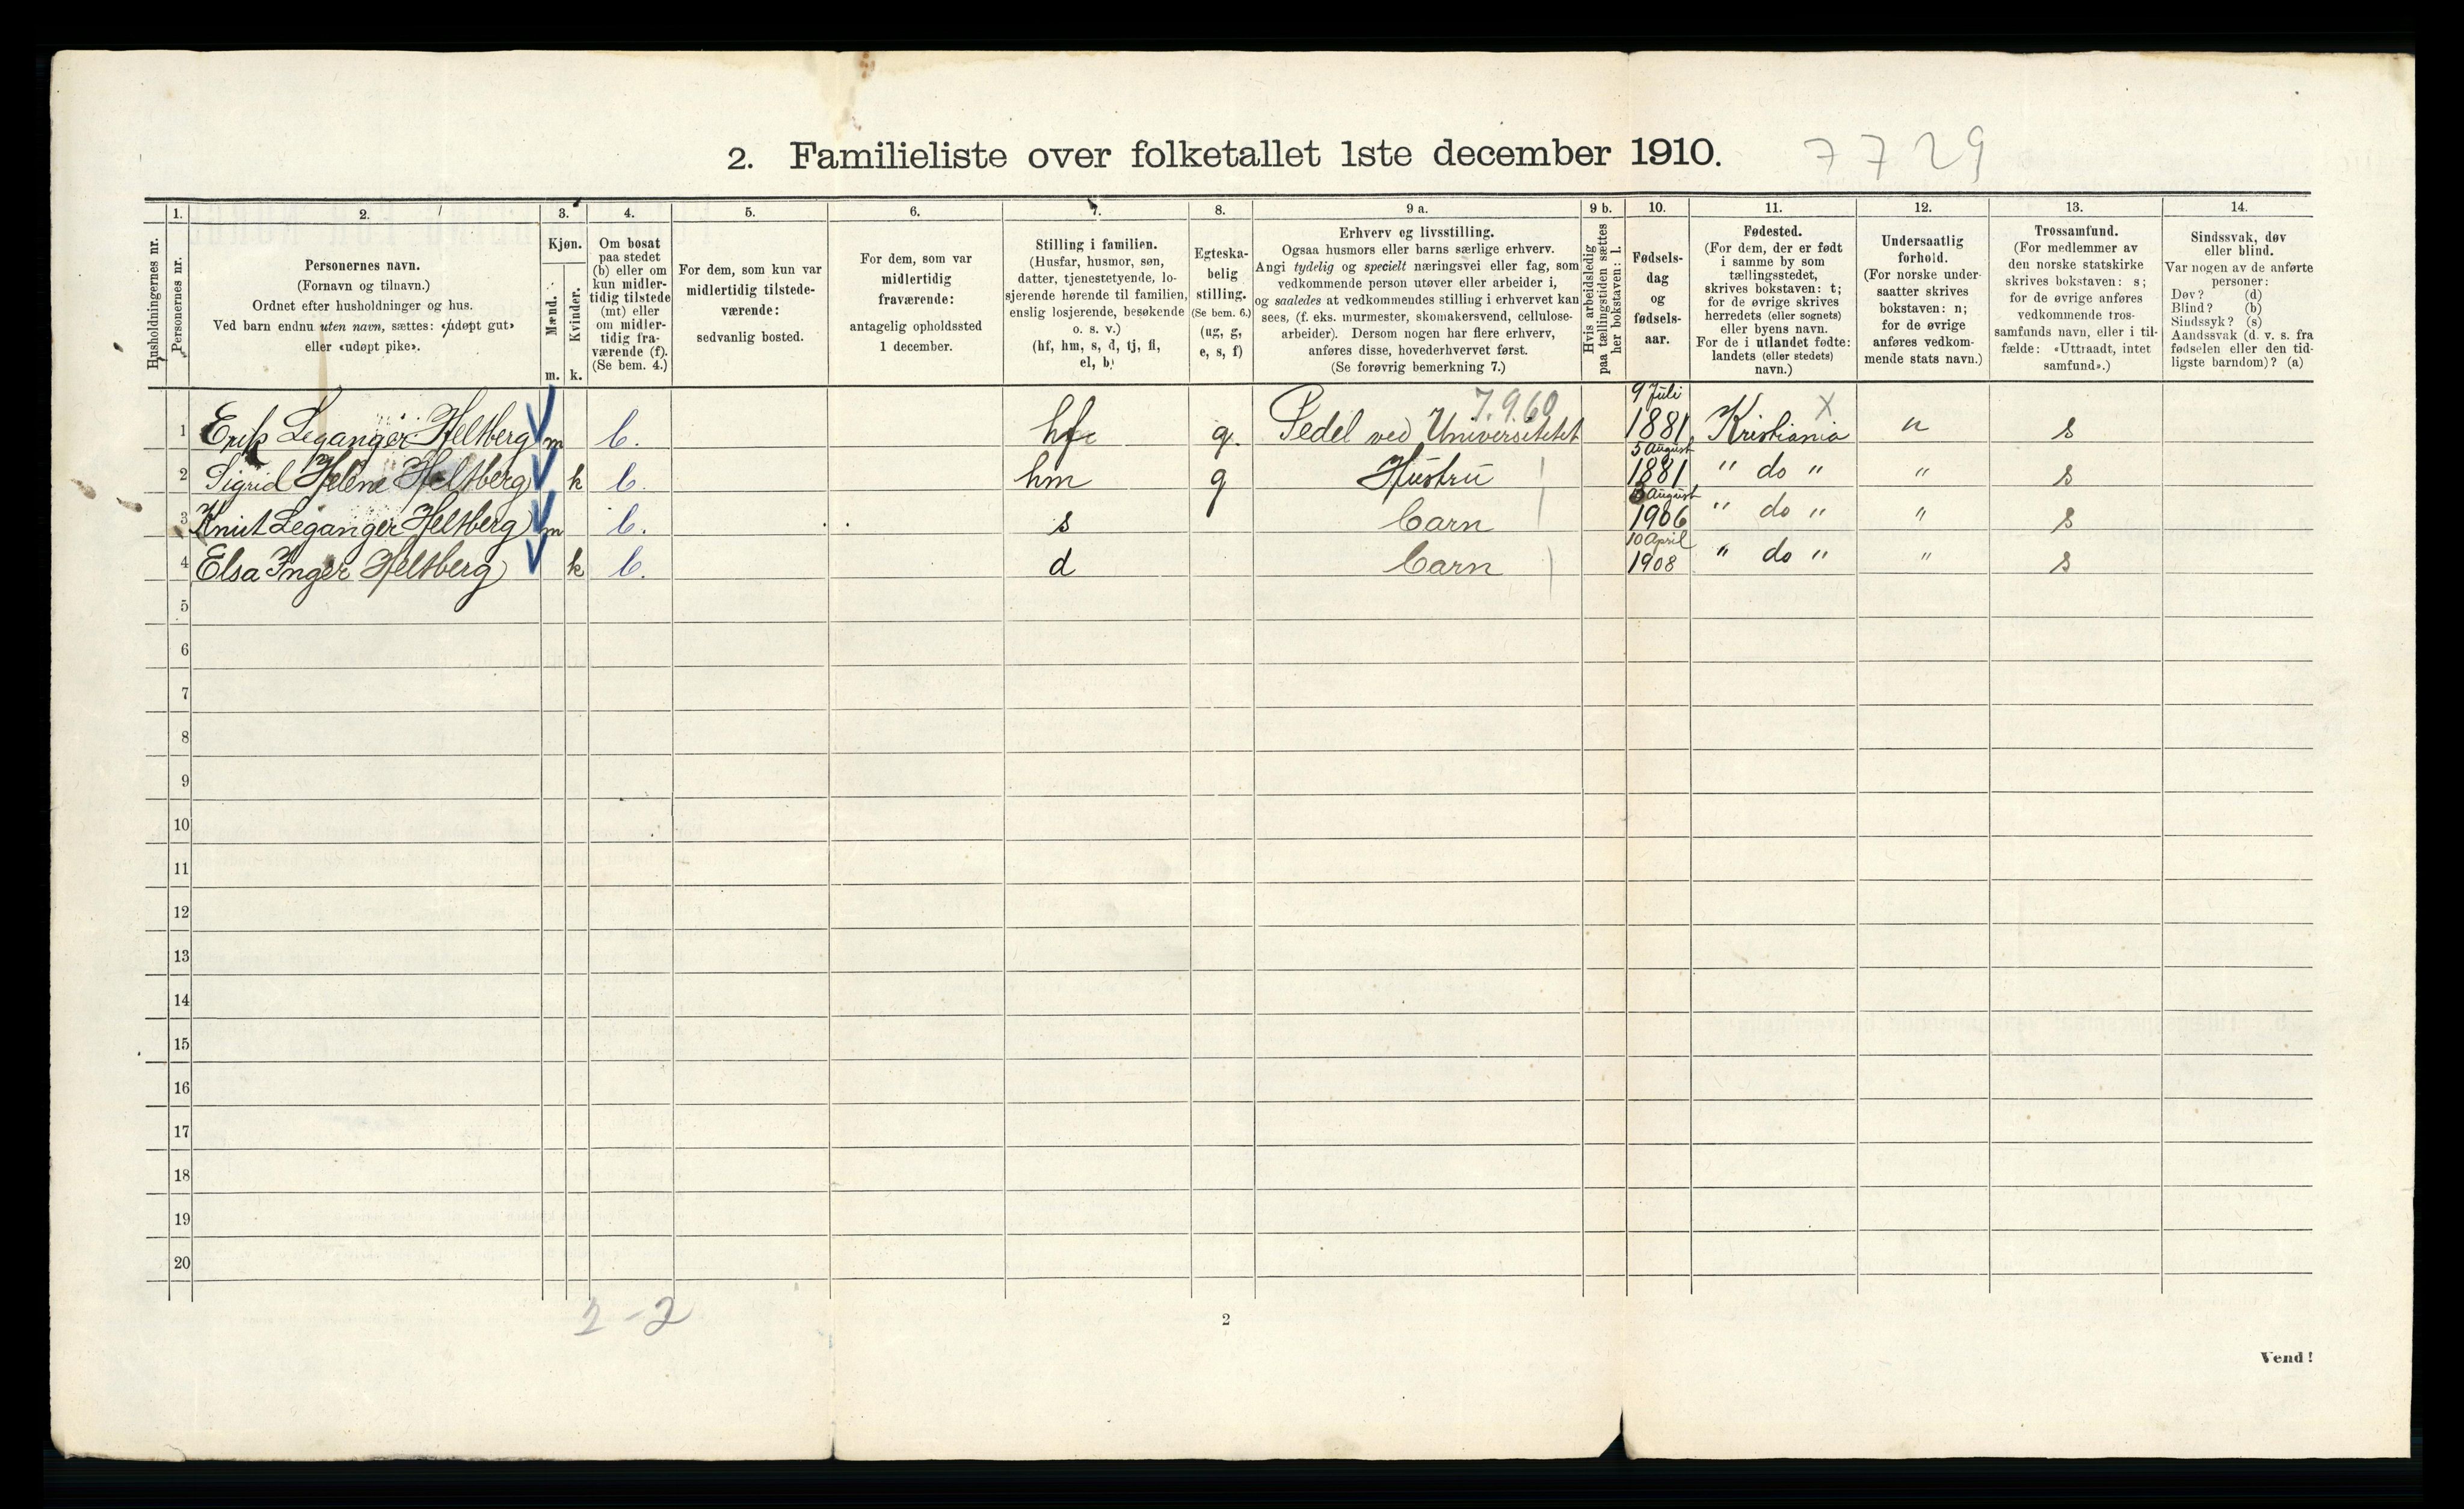 2. Familieliste over folketallet 1ste december 1910. 7729
Husholdningernes nr.
1. Personernes nr.
2. Personernes navn.
(Fornavn og tilnavn.)
Ordnet efter husholdninger og hus.
Ved barn endnu uten navn, sættes: «udøpt gut»
eller «udøpt pike».
3. Kjøn.
Mænd. m.
Kvinder. k.
4. Om bosat
paa stedet
(b) eller om
kun midler-
tidig tilstede
(mt) eller
om midler-
tidig fra-
værende (f).
(Se bem. 4.)
5. For dem, som kun var
midlertidig tilstede-
værende:
sedvanlig bosted.
6. For dem, som var
midlertidig
fraværende:
antagelig opholdssted
1 december.
7. Stilling i familien.
(Husfar, husmor, søn,
datter, tjenestetyende, lo-
sjerende hørende til familien,
enslig losjerende, besøkende
o. s. v.)
(hf, hm, s, d, tj, fl,
el, b)
8. Egteska-
belig
stilling.
(Se bem. 6.)
(ug, g,
e, s, f)
9 a. Erhverv og livsstilling.
Ogsaa husmors eller barns særlige erhverv.
Angi tydelig og specielt næringsvei eller fag, som
vedkommende person utøver eller arbeider i,
og saaledes at vedkommendes stilling i erhvervet kan
sees, (f. eks. murmester, skomakersvend, cellulose-
arbeider). Dersom nogen har flere erhverv,
anføres disse, hovederhvervet først.
(Se forøvrig bemerkning 7.)
9 b. Hvis arbeidsledig
paa tællingstiden sættes
her bokstaven: l.
10. Fødsels-
dag
og
fødsels-
aar.
11. Fødested.
(For dem, der er født
i samme by som
tællingsstedet,
skrives bokstaven: t;
for de øvrige skrives
herredets (eller sognets)
eller byens navn.
For de i utlandet fødte:
landets (eller stedets)
navn.)
12. Undersaatlig
forhold.
(For norske under-
saatter skrives
bokstaven: n;
for de øvrige
anføres vedkom-
mende stats navn.)
13. Trossamfund.
(For medlemmer av
den norske statskirke
skrives bokstaven: s;
for de øvrige anføres
vedkommende tros-
samfunds navn, eller i til-
fælde: «Uttraadt, intet
samfund».)
14. Sindssvak, døv
eller blind.
Var nogen av de anførte
personer:
Døv? (d)
Blind? (b)
Sindssyk? (s)
Aandssvak (d. v. s. fra
fødselen eller den tid-
ligste barndom)? (a)
7.9.60 9 Juli X
1 Erik Leganger Heltberg m b. hf g. Pedel ved Universitetet 1881 Kristiania n s
5 August
2 Sigrid Helene Heltberg k b. hm g Hustru 1881 " do " " s
August
3 Knut Leganger Heltberg m b. s barn 1906 " do " " s
10 April
4 Elsa Inger Heltberg k b. d barn 1908 " do " " s
5
6
7
8
9
10
11
12
13
14
15
16
17
18
19
20
2-2
2
Vend!